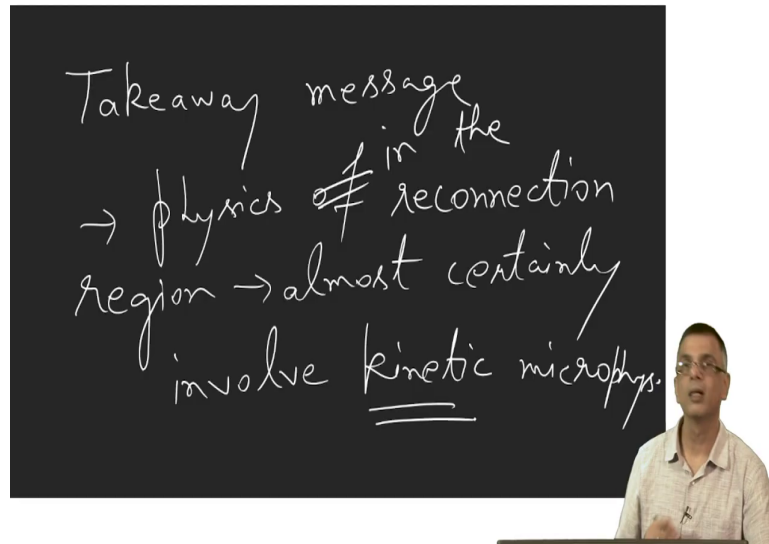 Takeaway message
→ physics in the reconnection
region → almost certainly
involve kinetic microphys.